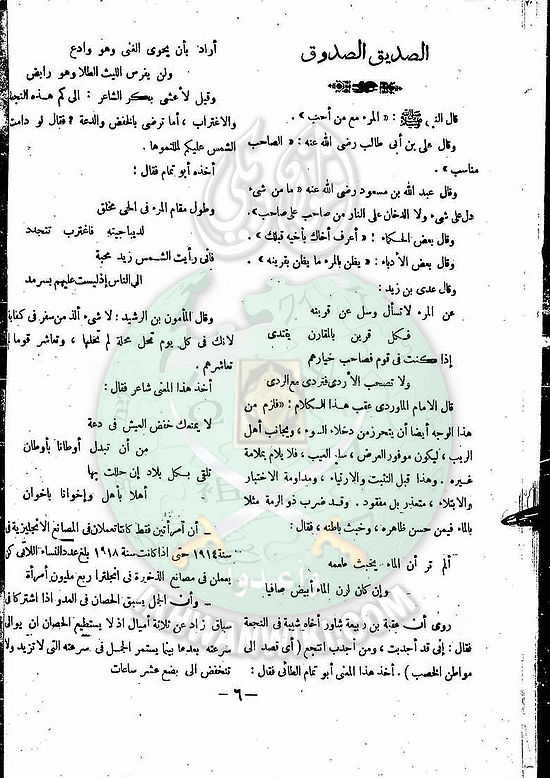 الصديق الصدوق
قال النبي ﷺ : « المرء مع من أحب » .
وقال على بن أبى طالب رضى الله عنه : « الصاحب
مناسب » .
وقال عبد الله بن مسعود رضى الله عنه « ما من شىء
دل على شىء ولا الدخان على النار من صاحب على صاحب » .
وقال بعض الحكماء : « أعرف أخاك بأخيه قبلك » .
وقال بعض الأدباء : « يظن بالمرء ما يظن بقرينه » .
وقال عدى بن زيد :
عن المرء لا تسأل وسل عن قرينه
فكل قرين بالمقارن يقتدى
إذا كنت فى قوم فصاحب خيارهم
ولا تصحب الأردى فتردى مع الردى
قال الامام الماوردى عقب هذا الكلام : « فلزم من
هذا الوجه أيضا أن يتحرز من دخلاء السوء ، ويجانب أهل
الريب ، ليكون موفور العرض ، سليم العيب ، فلا يلام بملامة
غيره . وهذا قبل التثبت والارتياء ، ومداومة الاختبار
والابتلاء ، متعذر بل مفقود . وقد ضرب ذو الرمة مثلا
بالماء فيمن حسن ظاهره ، وخبث باطنه ، فقال :
ألم تر أن الماء يخبث طعمه
وإن كان لون الماء أبيض صافيا
روى أن عقبة بن ربيعة شاور أخاه شيبة فى النجعة
فقال : إنى قد أجدبت ، ومن أجدب انتجع ( أى قصد الى
مواطن الخصب ) . أخذ هذا المعنى أبو تمام الطائى فقال :
أراد بأن يحوى الغنى وهو وادع
ولن يفرس الليث الطلا وهو رابض
وقيل لأعشى بكر الشاعر : الى كم هذه النجعة
والاغتراب ، أما ترضى بالخفض والدعة ؟ فقال لو دامت
الشمس عليكم لمللتموها .
أخذه أبو تمام فقال :
وطول مقام المرء فى الحى مخلق
لديباجتيه فاغترب تتجدد
فأنى رأيت الشمس زيد محبة
الى الناس إذ ليست عليهم بسرمد
وقال المأمون بن الرشيد : لا شىء ألذ من سفر فى كفاية
لانك فى كل يوم تحل محلة لم تحلها ، وتعاشر قوما لم
تعاشرهم .
أخذ هذا المعنى شاعر فقال :
لا يمنعك خفض العيش فى دعة
من أن تبدل أوطانا بأوطان
تلقى بكل بلاد إن حللت بها
أهلا بأهل وإخوانا باخوان
ــ أن امرأتين فقط كانتا تعملان فى المصانع الانجليزية فى
سنة ١٩١٤ حتى إذا كانت سنة ١٩١٨ بلغ عدد النساء اللائى كن
يعملن فى مصانع الذخيرة فى انجلترا ربع مليون أمرأة
ــ وأن الجمل يسبق الحصان فى العدو اذا اشتركا فى
سباق زاد عن ثلاثة أميال اذ لا يستطيع الحصان ان يوالى
سرعته بعدها بينما يستمر الجمل فى سرعته التى لا تزيد ولا
تنخفض الى بضع عشر ساعات
— ٦ —